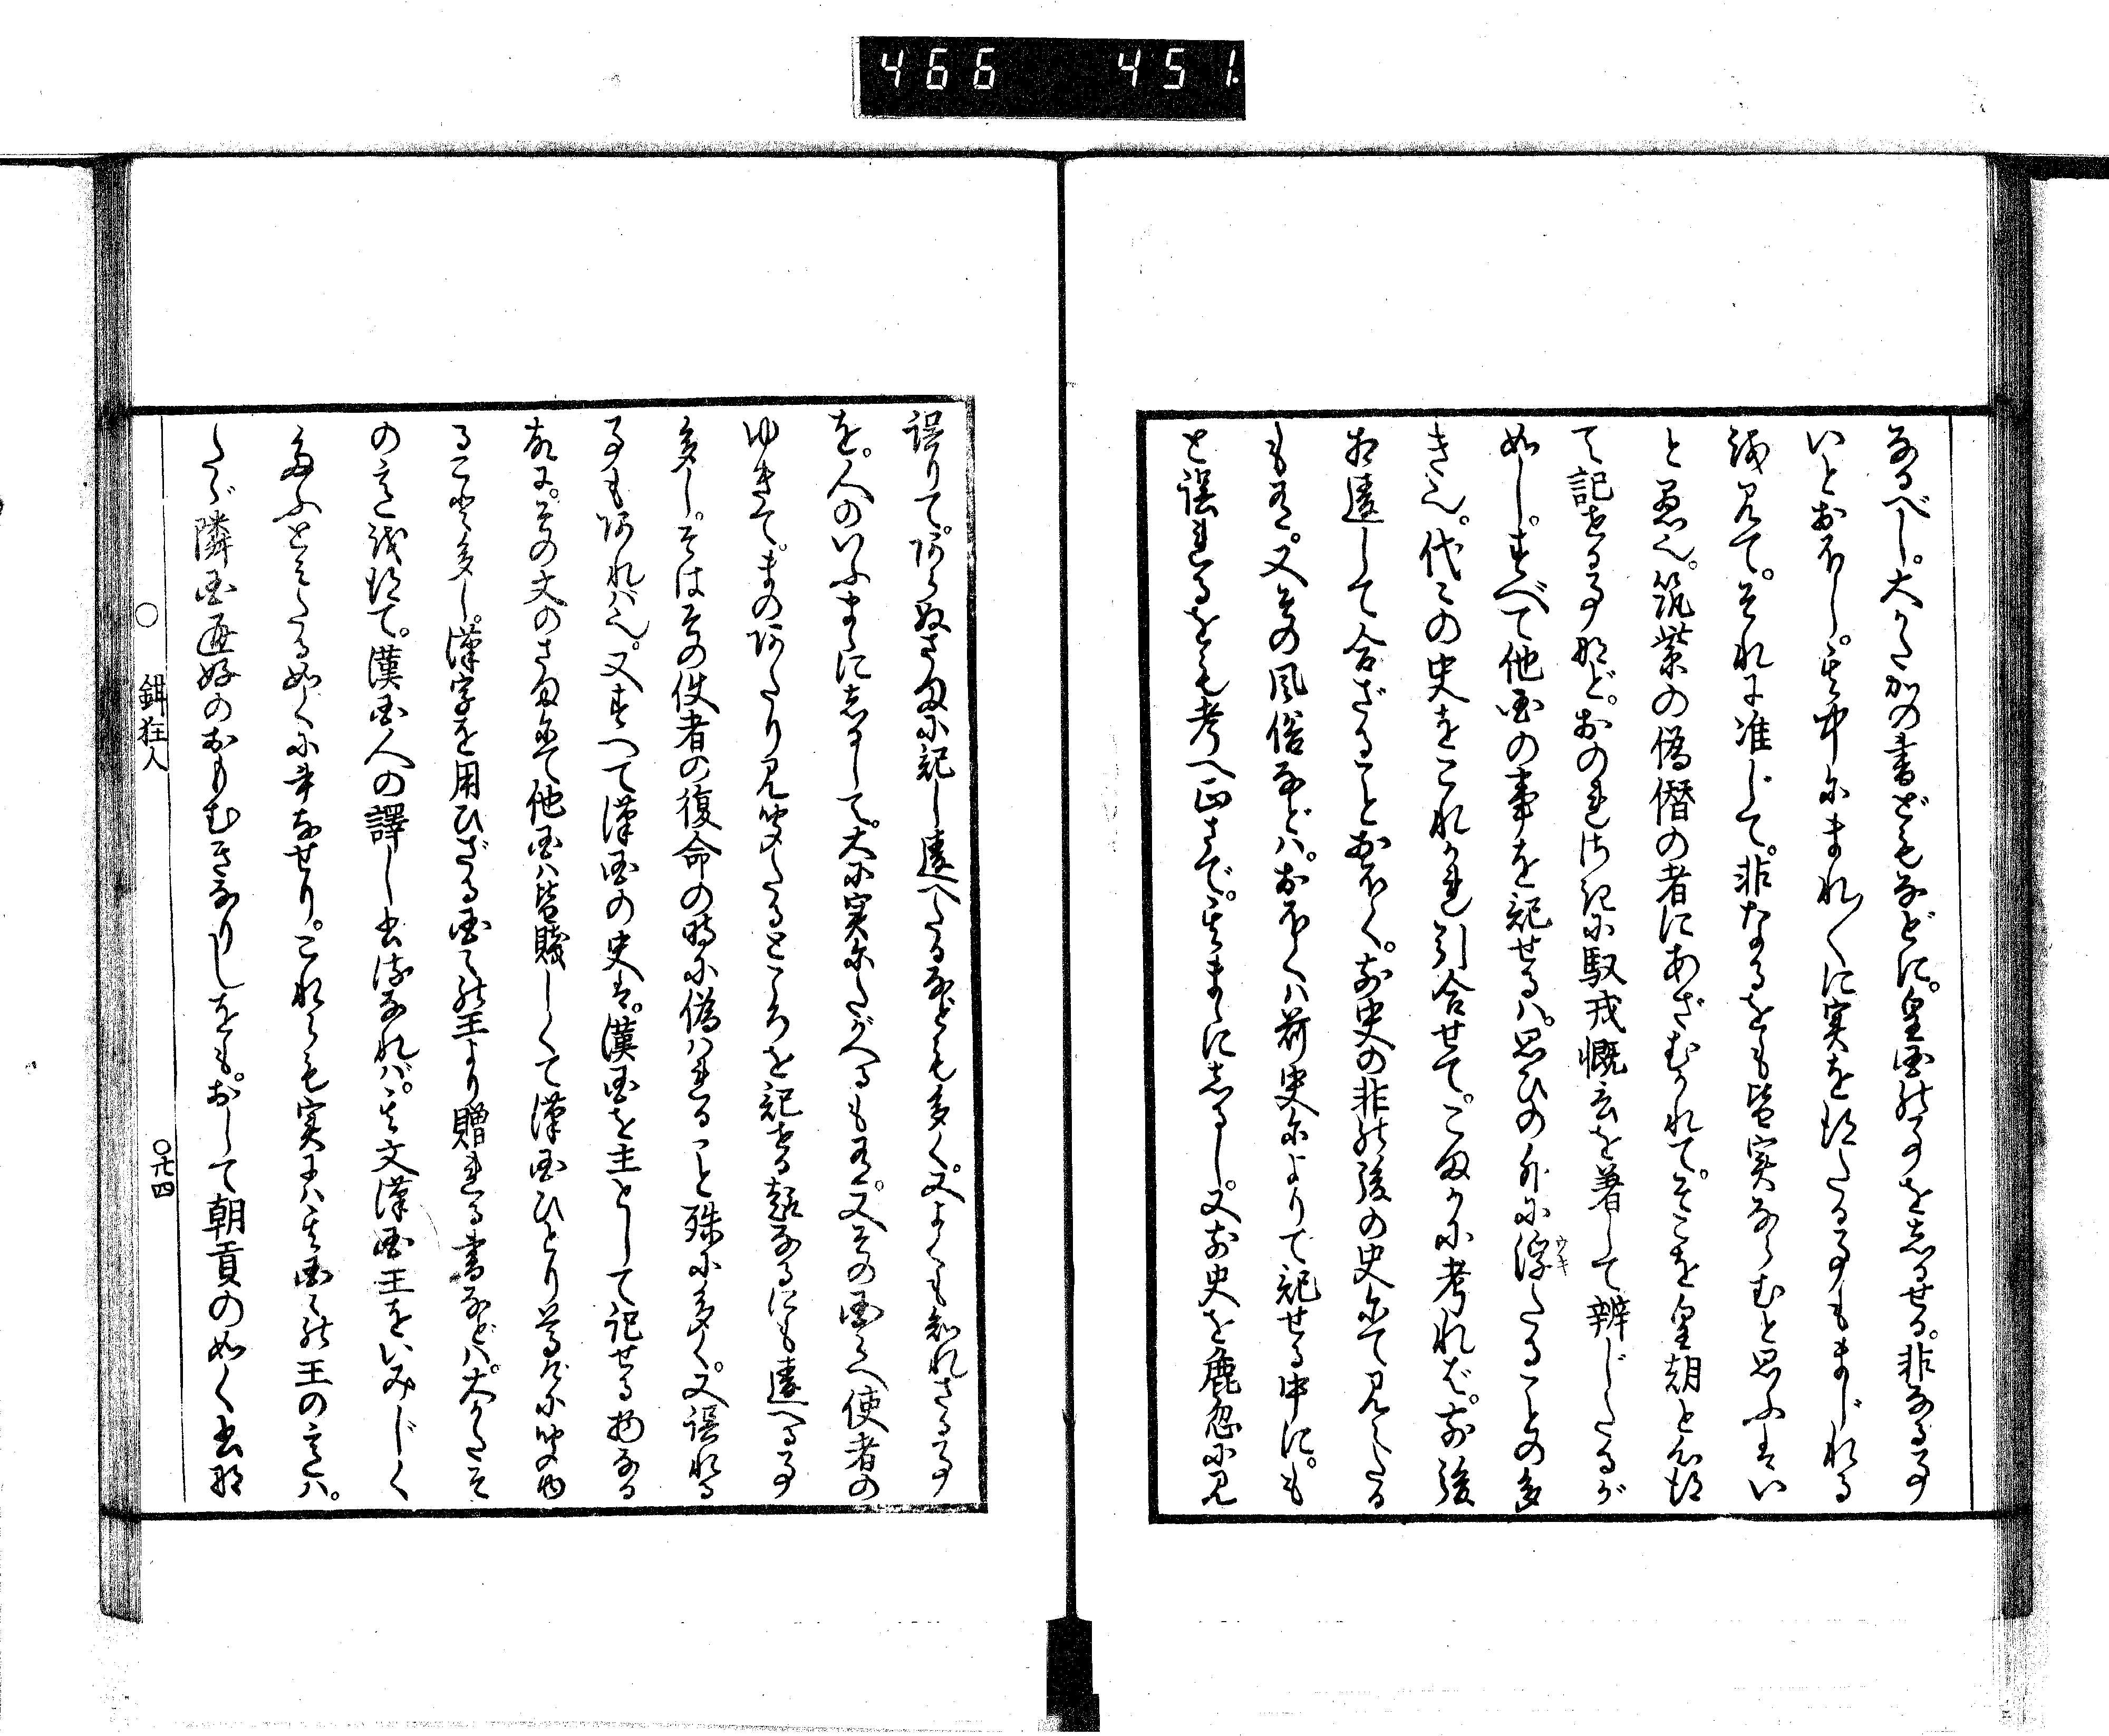 466 451
なるべし。大かたかの書どもなどに。皇国の事をしるせる。非なる事
いとおほし。其中にまれ〱に実を得たる事もまじれる
を見て。それに准じて。非なるをも皆実ならむと思ふは。い
と愚也。筑紫の偽僭の者にあざむかれて。そこを皇朝と心得
て記せる事など。おのれはやく馭戎慨言を著して辨じたるが
如し。すべて他国の事を記せるは。思ひの外に浮ウキたることの多
き也。代々の史をこれかれ引合せて。こまかに考れば。前後
相違して合ざることおほく。前史の非の後の史にて見えたる
も有。又その風俗などは。おほくは前史によりて記せる中に。も
と誤れるをも考へ正さで。其まゝにしるし。又前史を麁忽に見
誤りて。あらぬさまに記し違へたるなども多く。又よくも知れざる事
を。人のいふまゝにしるして。大に実にたがへるも有。又その国へ使者の
ゆきて。まのあたり見聞たるところを記せる趣なるにも違へる事
多し。そはその使者の復命の時に偽はれること殊に多く。又誤れる
事もあれば也。又すべて漢国の史は。漢国を主として記せる物なる
故に。その文のさまにて他国は皆賤しくて漢国ひとり尊げに聞ゆ
ること多し。漢字を用ひざる国々の王より贈れる書などは。大かたそ
の意を得て。漢国人の譯し出せるなれば。其文漢国王をいみじく
たふとみたる如くに書なせり。これらも実には其国々の王の意は。
たゞ隣国通好のおもむきなりしをも。おして朝貢の如く書な
○ 鉗狂人 ○廿四